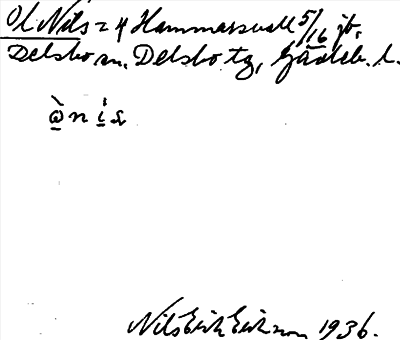 Ol Nils = 4 Hammarsvall 5/16 jb.
Delsbo sn. Delsbo tg, Gävleb. l.
Nils Erik Eriksson 1936.